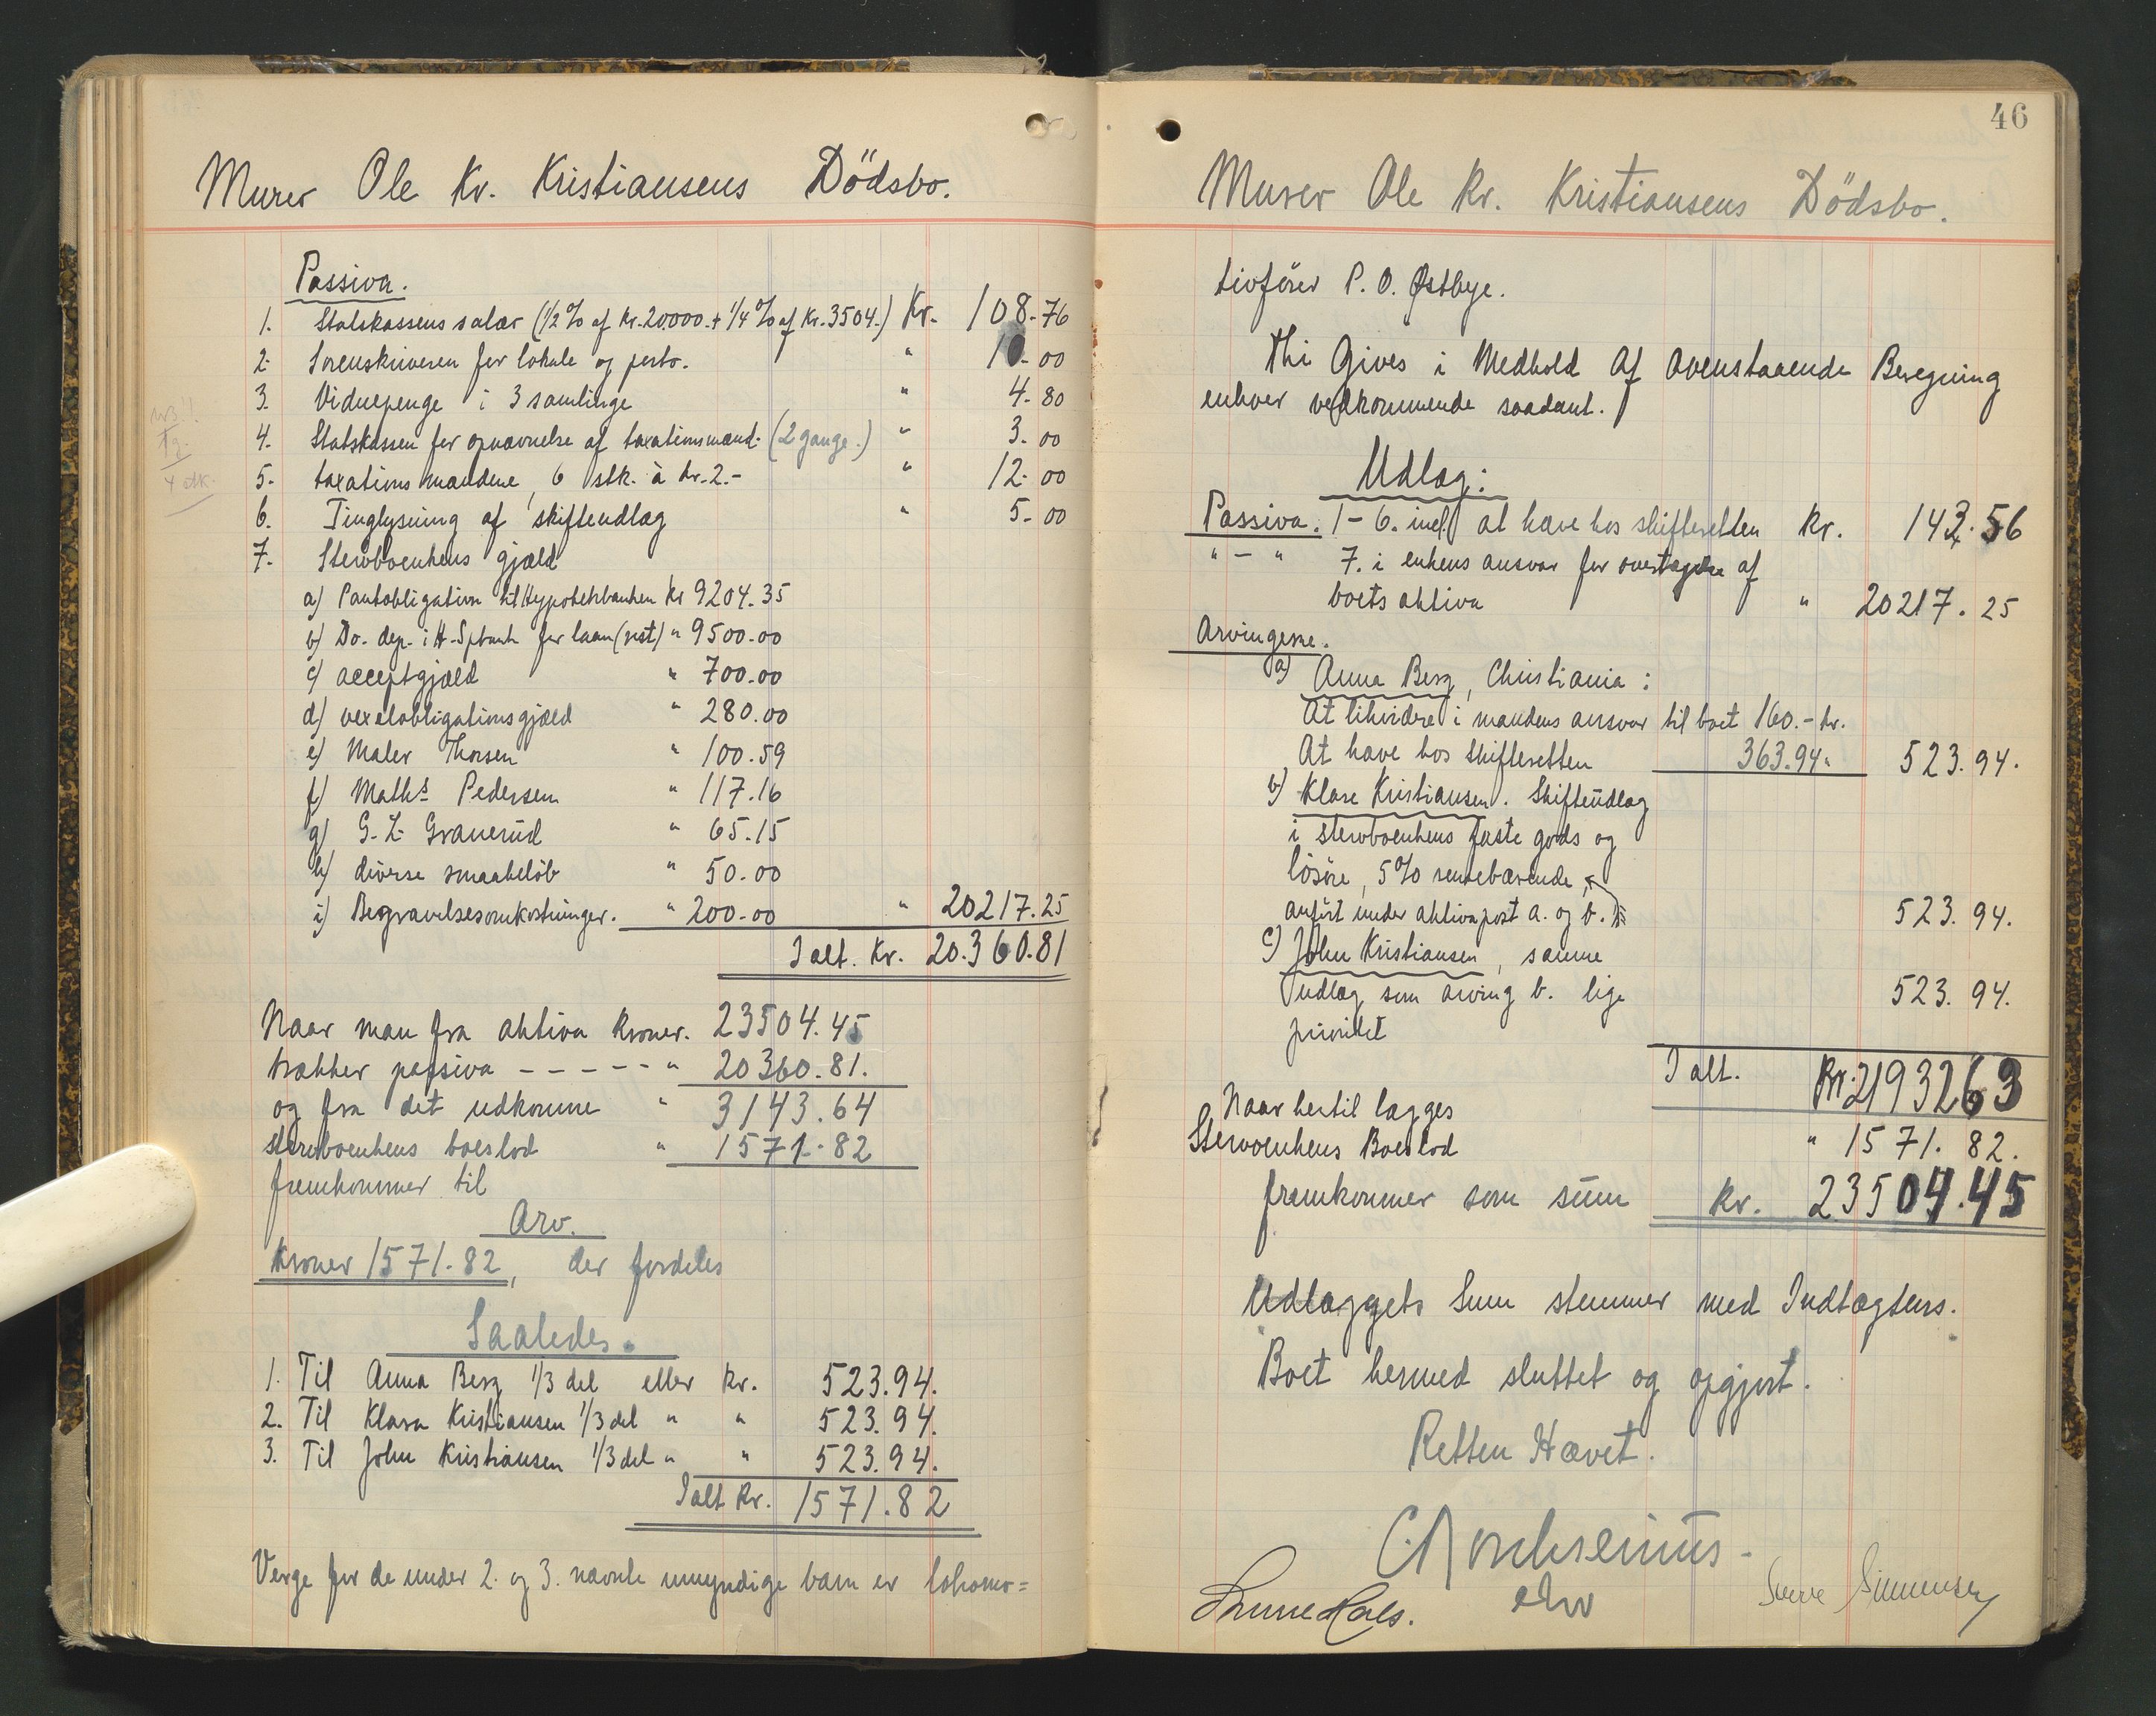 Murer Ole Kr. Kristiansens Dödsbo.
Passiva.
1. Statskassens salær (1/2 % af Kr. 20000. + 1/4 % af Kr. 3504.) Kr. 108.76
2. Sorenskriveren for lokale og porto. " 10.00
3. Vidnepenge i 3 samlinge " 4.80
4. Statskassen for opnævnelse af taxationsmænd. (2 gange.) " 3.00
5. taxationsmændene, 6 stk. à kr. 2.- " 12.00
6. Tinglysning af skifteudlæg " 5.00
7. Stervboenkens gjæld
4 stk.
a) Pantobligation til Hypotekbanken Kr 9204.35
b) Do. dep. i H. Spbank for laan (rest) " 9500.00
c) acceptgjæld " 700.00
d) vexelobligationsgjæld " 280.00
e) Maler Thorsen " 100.59
f) Maths Pedersen " 117.16
g) G. L. Granerüd " 65.15
h) diverse smaabeløb " 50.00
i) Begravelsesomkostninger. " 200.00 " 20217.25
Ialt. Kr. 20.360.81
Naar man fra aktiva Kroner. 23504.45
trækker passiva - - - - - " 20360.81.
og fra det udkomne " 3143.64
stervboenkens boeslod " 1571.82
fremkommer til
Arv.
Kroner 1571.82, der fordeles
Saaledes.
1. Til Anna Berg 1/3 del eller kr. 523.94.
2. Til Klara Kristiansen 1/3 del " " 523.94.
3. Til John Kristiansen 1/3 del " " 523.94.
Ialt Kr. 1571.82
Verge for de under 2. og 3. nævnte umyndige barn er lokomo=
46
Murer Ole Kr. Kristiansens Dödsbo.
tivfører P. O. Østbye.
Thi Gives i Medhold Af Ovenstaaende Beregning
enhver vedkommende saadant.
Udlæg:
Passiva. 1 - 6. incl. at hæve hos skifteretten Kr. 143.56
" - " 7. i enkens ansvar for overtagelse af
boets aktiva " 20217.25
Arvingerne.
a) Anna Berg, Christiania:
At likvidere i mandens ansvar til boet 160.- kr.
At hæve hos Skifteretten 363.94 " 523.94.
b) Klara Kristiansen. Skifteüdlæg
i stervboenkens faste gods og
lösöre, 5% rentebærende,
anfört under aktivapost a. og b. 523.94.
c) John Kristiansen, samme
udlæg som arving b. lige
prioritet 523.94.
Ialt. Kr. 21932.63
Naar hertil lægges
Stervoenkens Boeslod " 1571.82.
fremkommer som süm kr. 23504.45
Udlæggets Sum stemmer med Indtægtens.
Boet hermed sluttet og opgjort.
Retten Hævet.